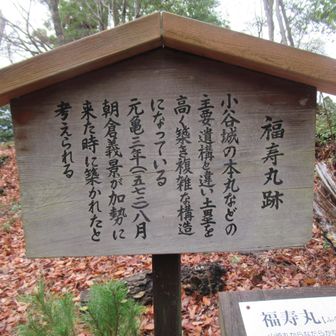 福寿丸跡
小谷城の本丸などの
主要遺構と違い土塁を
高く築き複雑な構造
になっている
元亀三年(一五七二)八月
朝倉義景が加勢に
来た時に築かれたと
考えられる
福寿丸